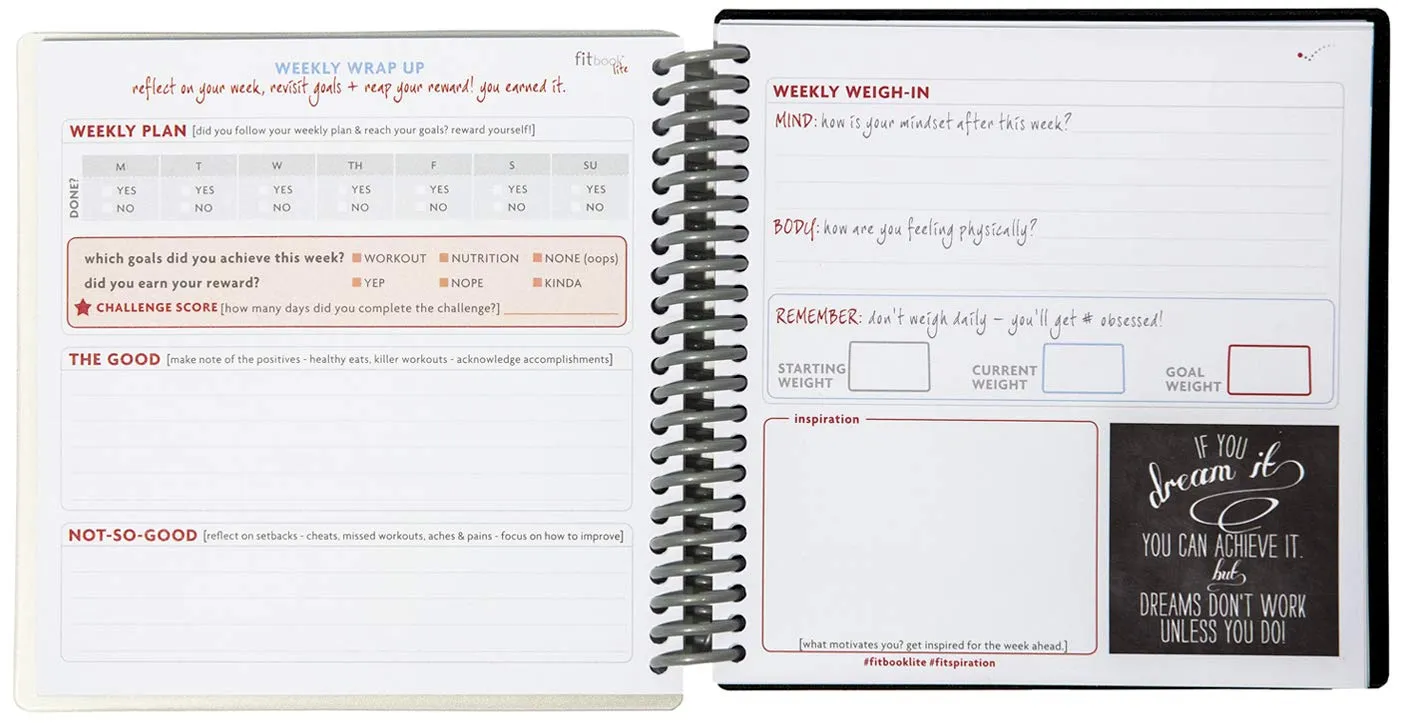 fitbook lite
WEEKLY WRAP UP
reflect on your week, revisit goals + reap your reward! you earned it.
WEEKLY PLAN [did you follow your weekly plan & reach your goals? reward yourself!]
M T W TH F S SU
DONE?
YES YES YES YES YES YES YES
NO NO NO NO NO NO NO
which goals did you achieve this week? WORKOUT NUTRITION NONE (oops)
did you earn your reward? YEP NOPE KINDA
CHALLENGE SCORE [how many days did you complete the challenge?]
THE GOOD [make note of the positives - healthy eats, killer workouts - acknowledge accomplishments]
NOT-SO-GOOD [reflect on setbacks - cheats, missed workouts, aches & pains - focus on how to improve]
WEEKLY WEIGH-IN
MIND: how is your mindset after this week?
BODY: how are you feeling physically?
REMEMBER: don't weigh daily – you'll get # obsessed!
STARTING WEIGHT
CURRENT WEIGHT
GOAL WEIGHT
inspiration
[what motivates you? get inspired for the week ahead.]
#fitbooklite #fitspiration
IF YOU
dream it
YOU CAN ACHIEVE IT.
but
DREAMS DON'T WORK
UNLESS YOU DO!